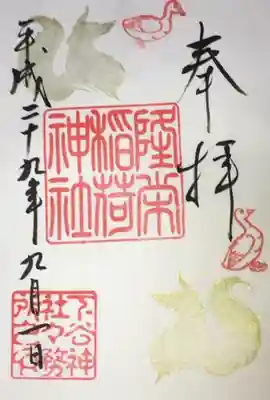 奉拝
隆栄稲荷神社
平成二十九年九月一日
下谷神社々務所